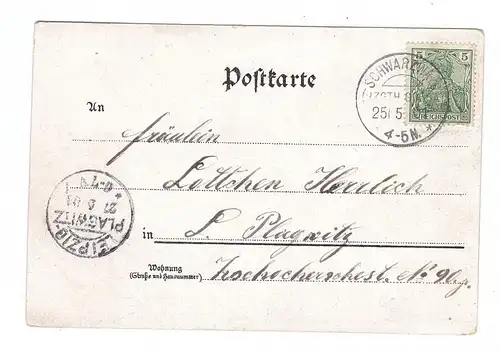 Postkarte
5 5
REICHSPOST
SCHWARZ
25. 5.
4-5N. *
An
Fräulein
Lottchen Herrlich
in L. Plagwitz
Wohnung
(Straße und Hausnummer)
Zschochersche st. No 90
LEIPZIG-
PLAGWITZ